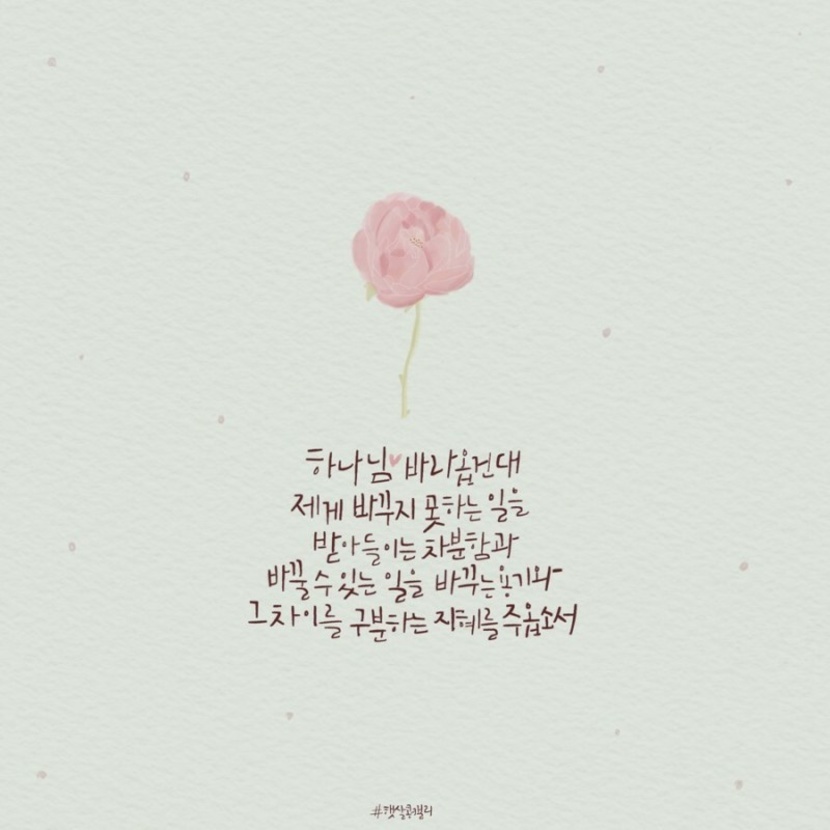 하나님♥바라옵건대
제게 바꾸지 못하는 일을
받아들이는 차분함과
바꿀 수 있는 일을 바꾸는 용기와
그 차이를 구분하는 지혜를 주옵소서